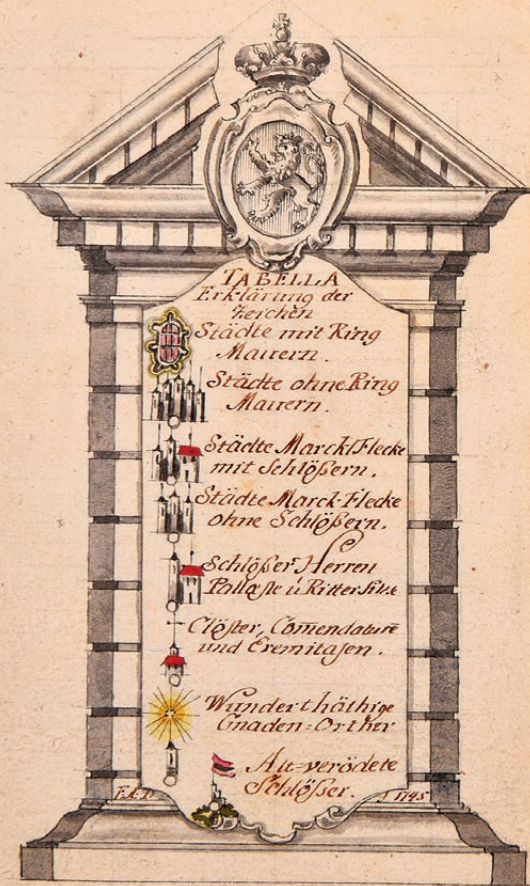 TABELLA
Erklärung der
Zeichen
Städte mit Ring
Mauern.
Städte ohne Ring
Mauern.
Städte Marckt Flecke
mit Schlößern.
Städte Marck-Flecke
ohne Schlößern.
Schlößer Herren
Pallæste u Ritter
Clöster, Com̄endaturē
und Eremitasen.
Wunderthäthige
Gnaden-Orther
Alt-verödete
Schlößer.
1745